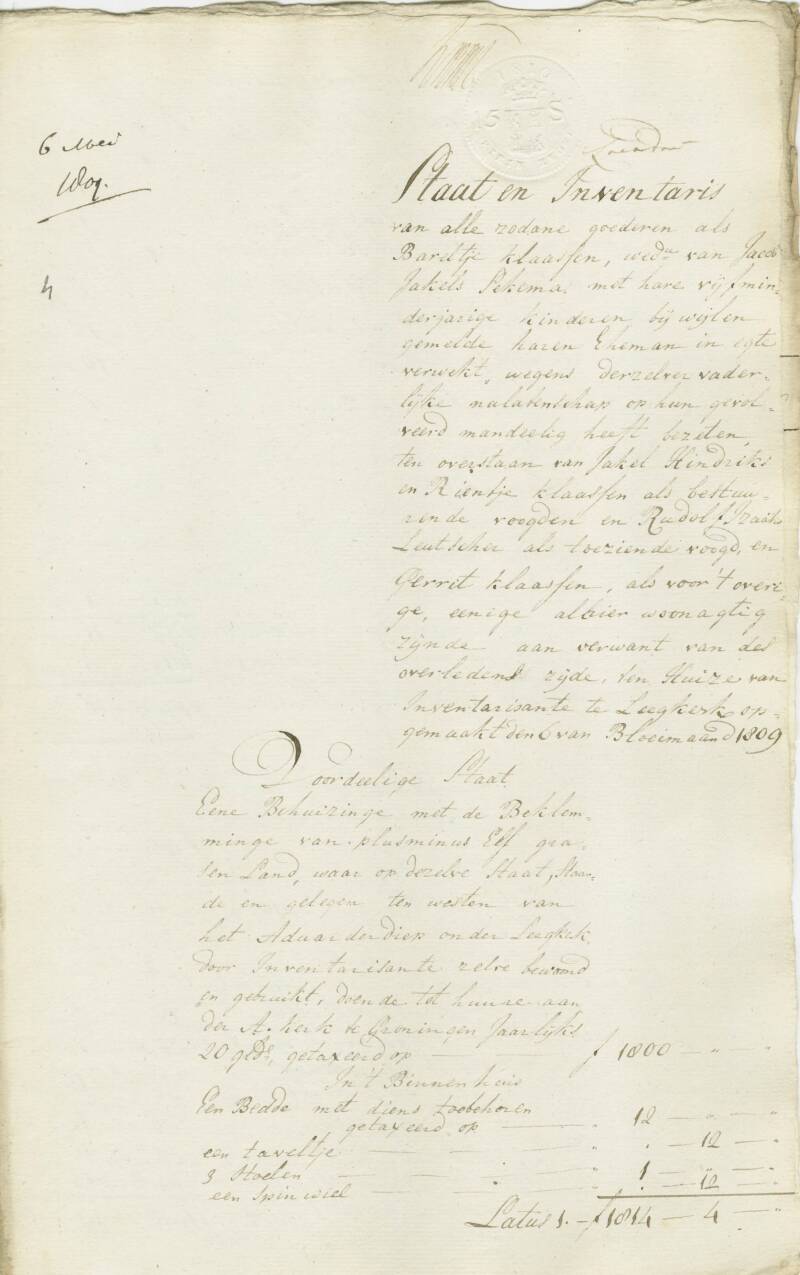 6 Mei
1809.
4
5 S S
Staat en Inventaris
van alle zodane goederen als
Bareltje Klaassen, wedu van Jacob
Jakels Pekema, met hare vijf min-
derjarige kinderen, bij wijlen
gemelde haren Eheman in egte
verwekt, wegens derzelver vader-
lijke nalatenschap op hun gevol-
veerd mandeelig heeft bezeten,
ten overstaan van Jakel Hindriks
en Rientje Klaassen als bestuu-
rende voogden en Rudolf Izaäk
Leutscher als toeziende voogd, en
Gerret Klaassen, als voor 't overi-
ge, eenige alhier woonagtig
zijnde aan verwant van des
overledens zijde, ten Huize van
Inventarisante te Leegkerk op-
gemaakt den 6 van Bloeimaand 1809
Voordeelige Staat
Eene Behuizinge met de Beklem-
minge van plusminus Elf gra-
sen Land, waar op dezelve Staat, Staan-
de en gelegen ten westen van
het Aduarderdiep onder Leegkerk,
door Inventarisante zelve bewoond
en gebruikt, doende tot huure aan
der A. kerk te Groningen Jaarlijks
20 glds, getaxeerd op — f 1800 — " — "
In 't Binnenhuis
Een Bedde met diens toebehoren
getaxeerd op — " 12 — " — "
een taveltje — " " — 12 — "
3 Stoelen — " 1 — " — "
een Spinwiel — " " — 12 — "
Latus 1. — f 1814 — 4 — "